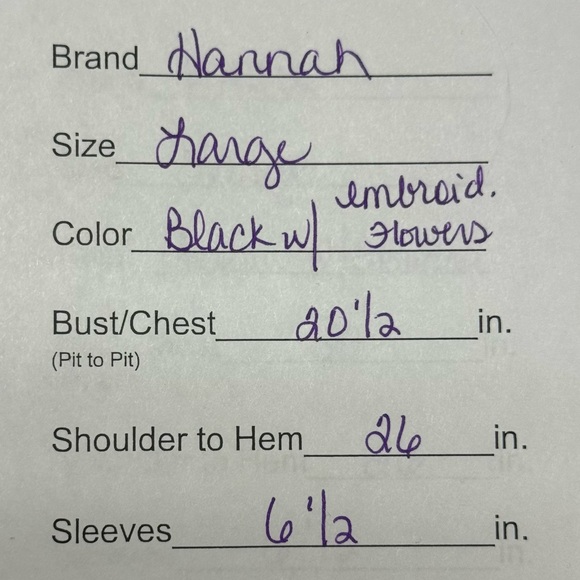 Brand Hannah
Size Large
embroid.
Color Black w/ Flowers
Bust/Chest 20 1/2 in.
(Pit to Pit)
Shoulder to Hem 26 in.
Sleeves 6 1/2 in.